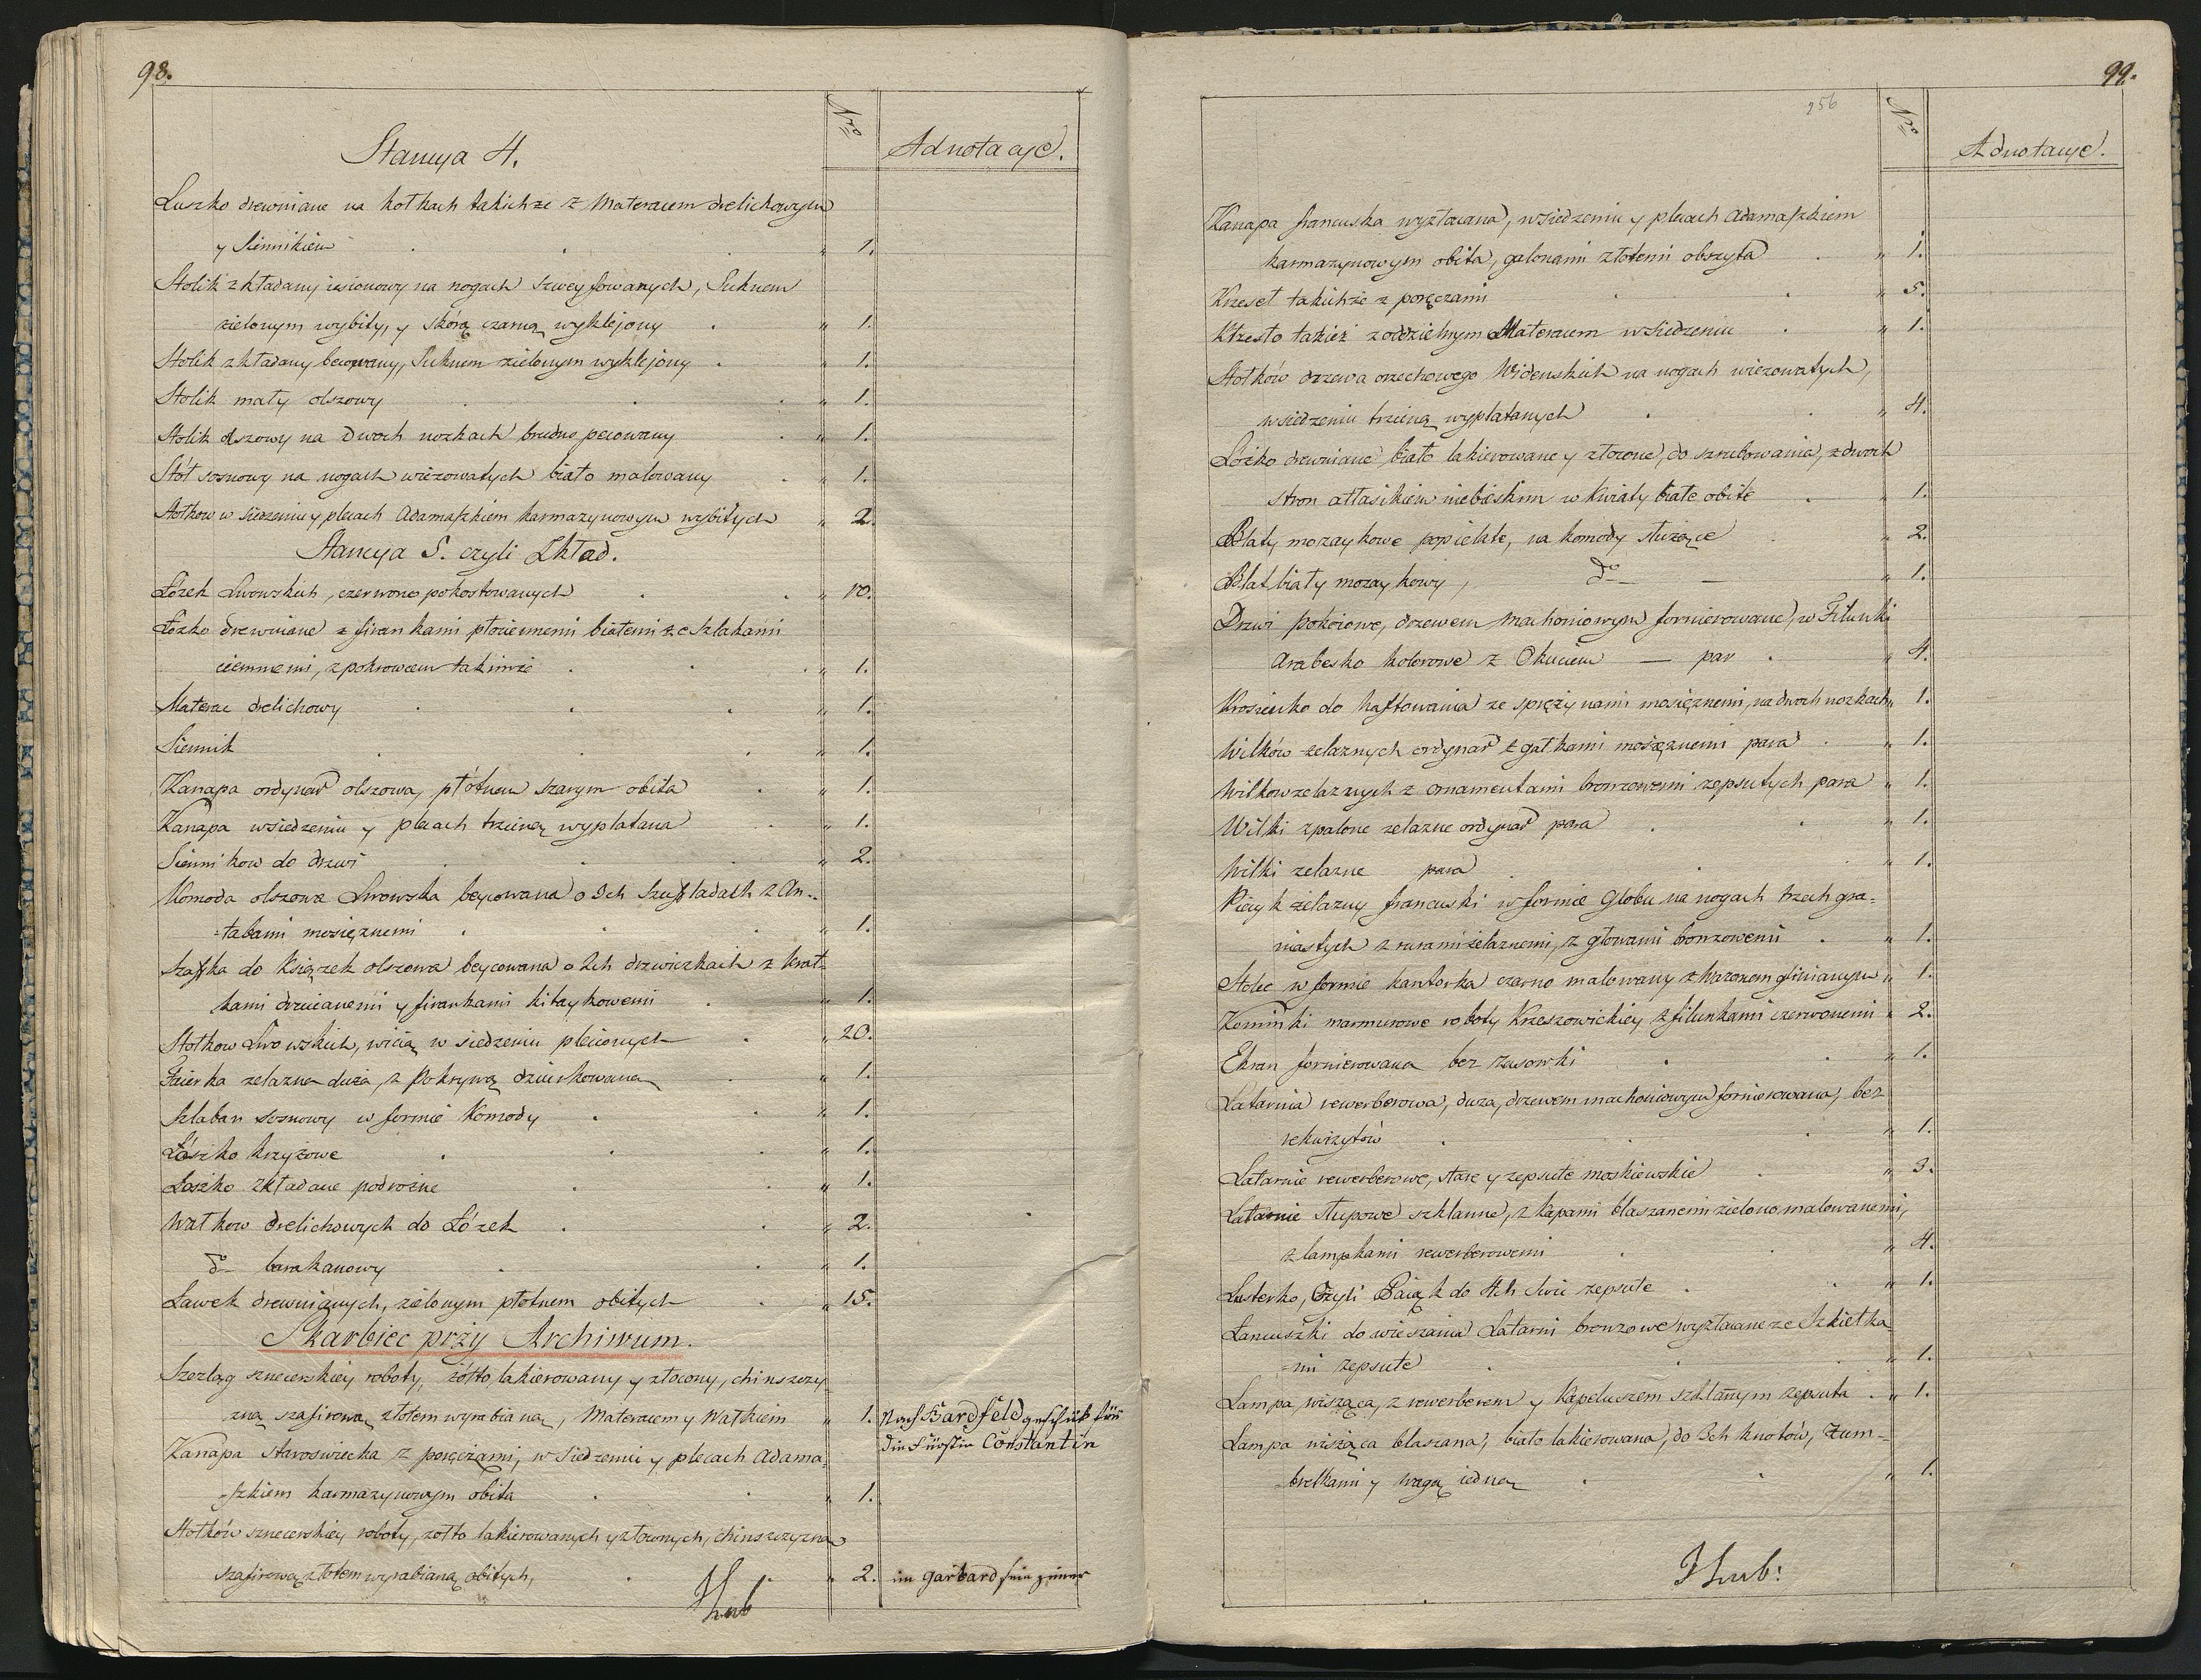 98.
Nro
Adnotacye.
Stancya 4.
Luszko drewniane na kołkach takichze z Materacem drelichowym
y Siennikiem " 1.
Stolik zkładany iesionowy na nogach szweyfowanych, Suknem
zielonym wybity, y skórą czarną wyklejony " 1.
Stolik zkładany becowany, Suknem zielonym wyklejony " 1.
Stolik mały olszowy " 1.
Stolik olszowy na dwoch nozkach brudno pecowany " 1.
Stół sosnowy na nogach wiezowatych biało malowany " 1.
Stołkow w siedzeniu y plecach Adamaszkiem karmazynowym wybitych " 2.
Stancya 5. czyli Skład.
Łózek Lwowskich, czerwono pokostowanych " 10.
Łózko drewniane z firankami płociennemi białemi ze szlakami
ciemnemi, z pokrowcem takimże " 1.
Materac drelichowy " 1.
Siennik " 1.
Kanapa ordynar olszowa, płótnem szarym obita " 1.
Kanapa w siedzeniu y plecach trzciną wyplatana " 1.
Siennikow do drzwi " 2.
Komoda olszowa Lwowska beycowana o 3ch Szufladach z An-
-tabami mosięznemi " 1.
Szafka do Książek olszowa beycowana o 2ch drzwiczkach z krat-
kami drucianemi y firankami kitaykowemi " 1.
Stołkow Lwowskich, wicią w siedzeniu plecionych " 20.
Fajerka zelazna duża, z Pokrywą dziurkowaną " 1.
Szlaban sosnowy w formie Komody " 1.
Łóżko krzyżowe " 1.
Łożko zkładane podrozne " 1.
Wałkow drelichowych do Łózek " 2.
do barakanowy " 1.
Ławek drewnianych, zielonym płotnem obitych " 15.
Skarbiec przy Archiwum.
Szezląg sznecerskiey roboty, żółto lakierowany y złocony, chinszczy-
zną szafirową złotem wyrabianą, Materacem y Wałkiem " 1. Nach Bardfeld geschickt für
die Fürstin Constantin
Kanapa Staroswiecka z poręczami, w Siedzeniu y plecach Adama-
-szkiem karmazynowym obita " 1.
Stołków sznecerskiey roboty, żołto lakierowanych y złoconych, chinszczyzną
szafirową złotem wyrabianą obitych, " 2. im
Hub

99.
256
Nro
Adnotacye.
Kanapa francuska wyzłacana, w siedzeniu y plecach Adamaszkiem
karmazynowym obita, galonami złotemi obszyta " 1.
Krzeseł takichże z poręczami " 5.
Krzesło takież z oddzielnym Materacem w siedzeniu " 1.
Stołków drzewa orzechowego Widenskich na nogach wiezowatych,
w siedzeniu trzciną wyplatanych " 4.
Łóżko drewniane biało lakierowane y złocone, do szrubowania, z dwoch
stron atłasikiem niebieskim w kwiaty białe obite " 1.
Blaty mozaykowe popielate, na komody służące " 2.
Blat biały mozaykowy, do — " 1.
Drzwi pokoiowe, drzewem machoniowym fornierowane, w Filunki
Arabesko kolorowe z Okuciem — par " 4.
Krosienko do haftowania ze sprężynami mosięznemi, na dwoch nozkach " 1.
Wilków zelaznych ordynar z gałkami mosięznemi para " 1.
Wilkow zelaznych z ornamentami bronzowemi zepsutych para " 1.
Wilki zpalone zelazne ordynar para " 1.
Wilki zelazne para " 1.
Piecyk żelazny francuski w formie Globu na nogach trzech gra-
niastych z rurami żelaznemi, z głowami bronzowemi " 1.
Stolec w formie kantorka czarno malowany z wazonem glinianym " 1.
Kominki marmurowe roboty Krzeszowickiey z filunkami czerwonemi " 2.
Ekran fornierowana bez zasowki " 1.
Latarnia rewerberowa, duza, drzewem machoniowym fornierowana, bez
rekwizytów " 1.
Latarnie rewerberowe, stare y zepsute moskiewskie " 3.
Latarnie słupowe szklanne, z kapami blaszanemi zielono malowanemi,
z lampkami rewerberowemi " 4.
Lusterko, Czyli Paiąk do 4ch Swic zepsute " 1.
Łancuszki do wieszania Latarni bronzowe wyzłacane ze Szkiełka-
-mi zepsute " 1.
Lampa wisząca, z rewerberem y Kapeluszem szklannym zepsuta " 1.
Lampa wisząca blaszana, biało lakierowana, do 3ch knotów, z um-
-brelkami y wagą iedną " 1.
Hub: